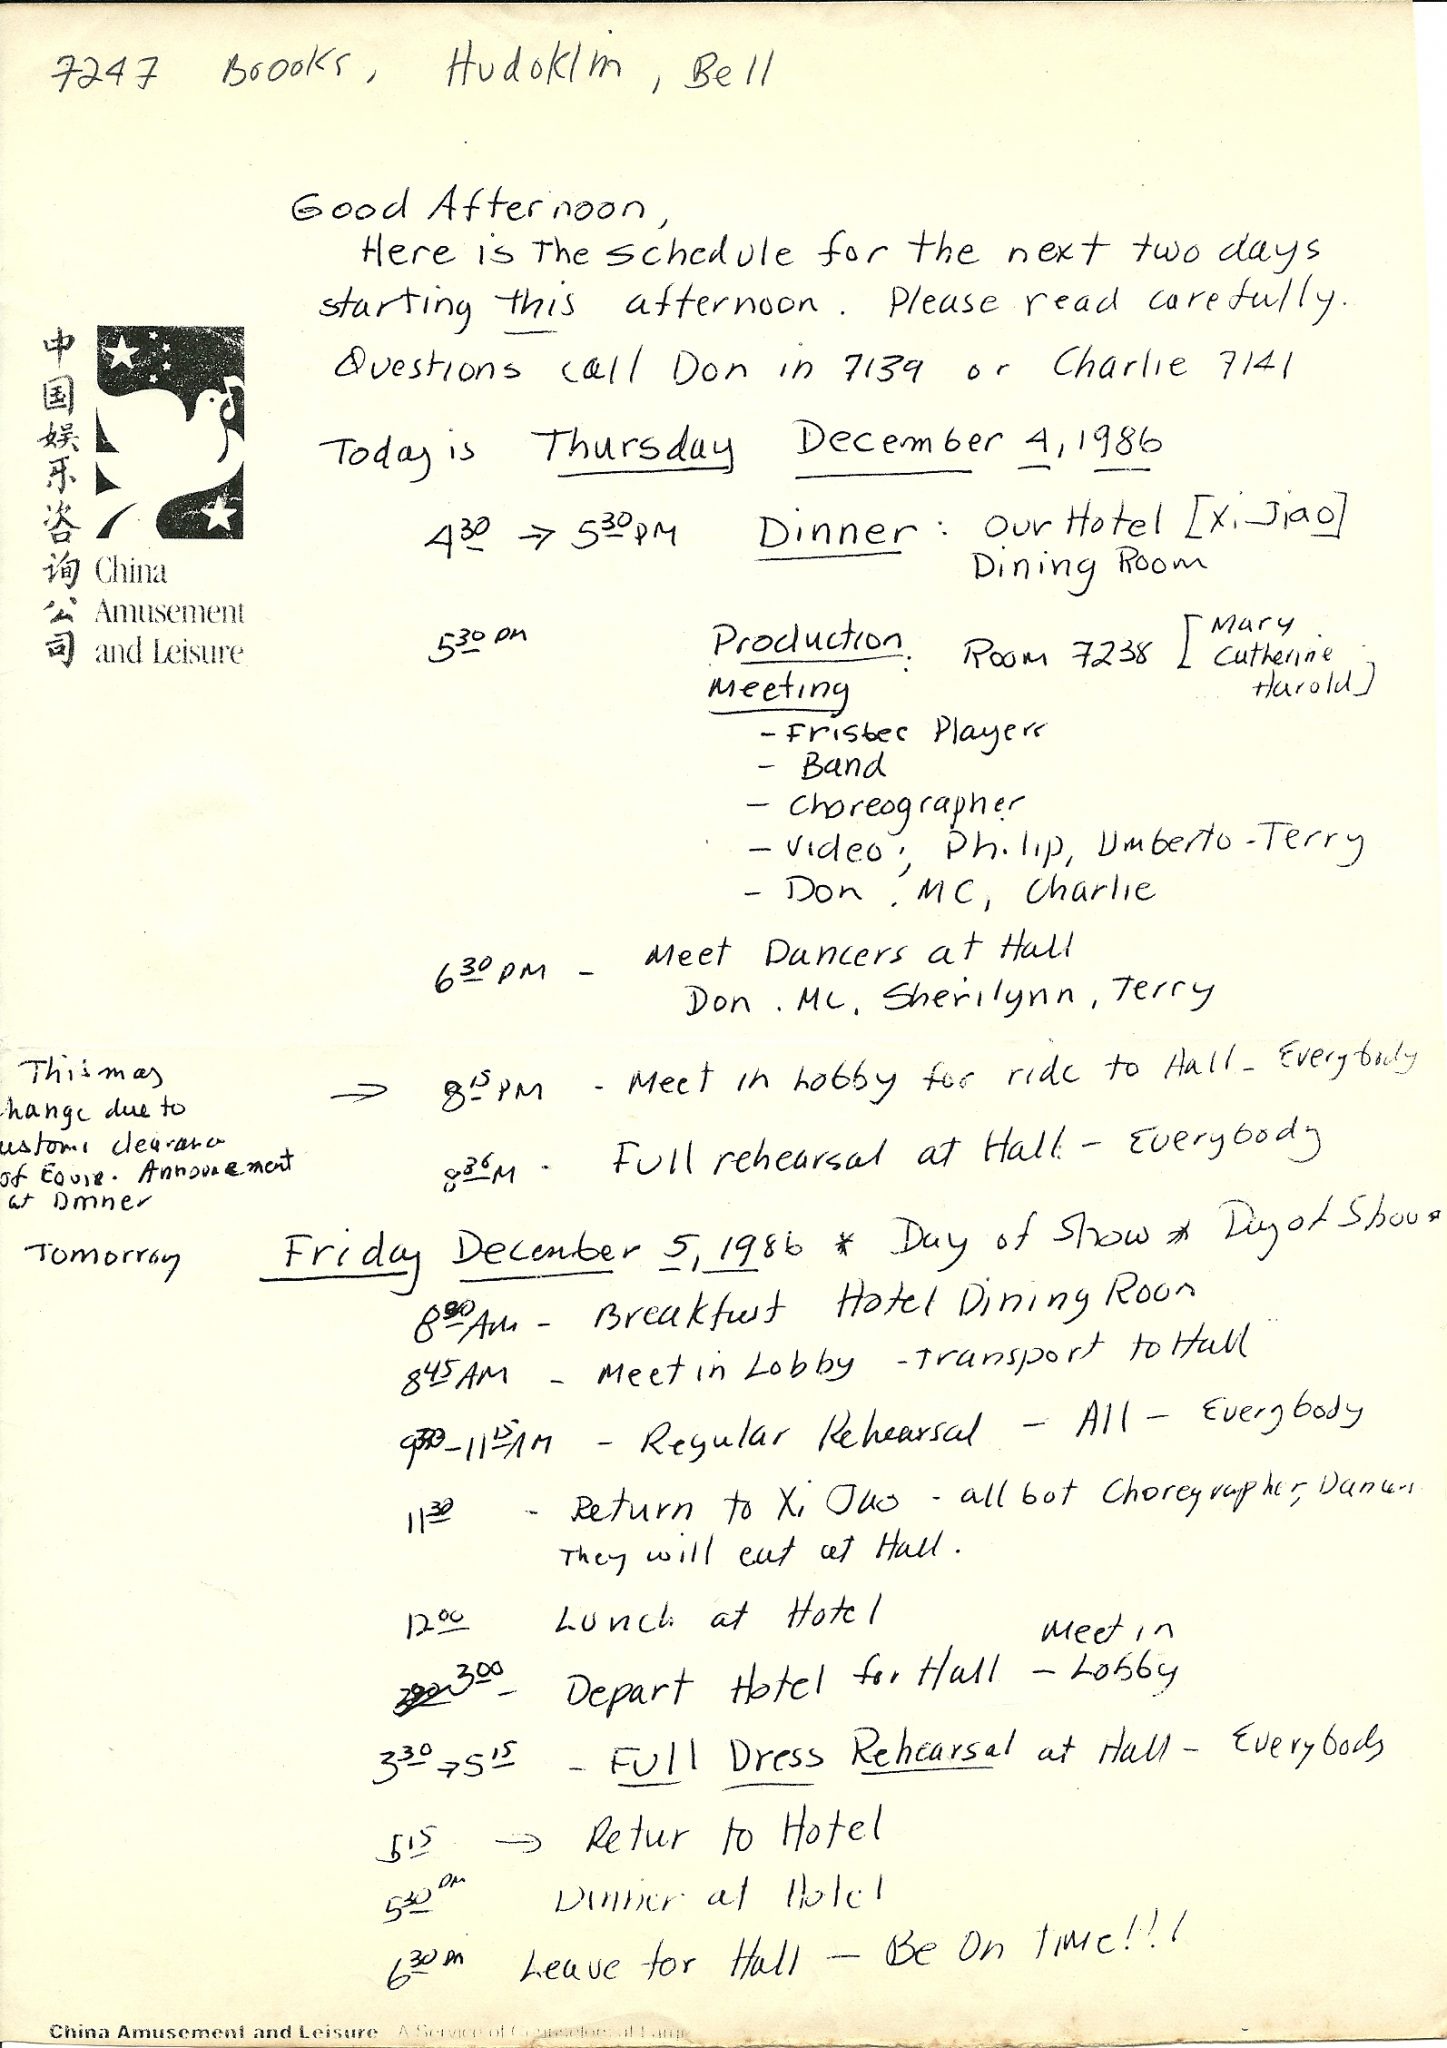 7247 Brooks, Hudoklin, Bell
Good Afternoon,
Here is The schedule for the next two days
starting this afternoon. Please read carefully.
Questions call Don in 7139 or Charlie 7141
中国娱乐咨询公司
China
Amusement
and Leisure
Today is Thursday December 4, 1986
4 30 → 5 30 PM Dinner: Our Hotel [Xi Jiao]
Dining Room
5 30 PM Production Meeting: Room 7238 [Mary Catherine Harold]
- Frisbee Players
- Band
- Choreographer
- Video; Philip, Umberto - Terry
- Don, MC, Charlie
6 30 PM - Meet Dancers at Hall
Don, MC, Sherilynn, Terry
This may
hange due to
ustoms clearance
of Equip. Announcement
at Dinner
→ 8 15 PM - Meet in Lobby for ride to Hall - Everybody
8 30 M - Full rehearsal at Hall - Everybody
Tomorrow Friday December 5, 1986 * Day of Show * Day of Show *
8 00 AM - Breakfast Hotel Dining Room
8 45 AM - Meet in Lobby - Transport to Hall
9 30 - 11 15 AM - Regular Rehearsal - All - Everybody
11 30 - Return to Xi Jiao - all bot Choregrapher, Dancers
They will eat at Hall.
12 00 Lunch at Hotel
3 00 - Depart Hotel for Hall - Meet in Lobby
3 30 → 5 15 - Full Dress Rehearsal at Hall - Everybody
5 15 → Retur to Hotel
5 30 PM Dinner at Hotel
6 30 PM Leave for Hall - Be On Time!!!
China Amusement and Leisure A Service of